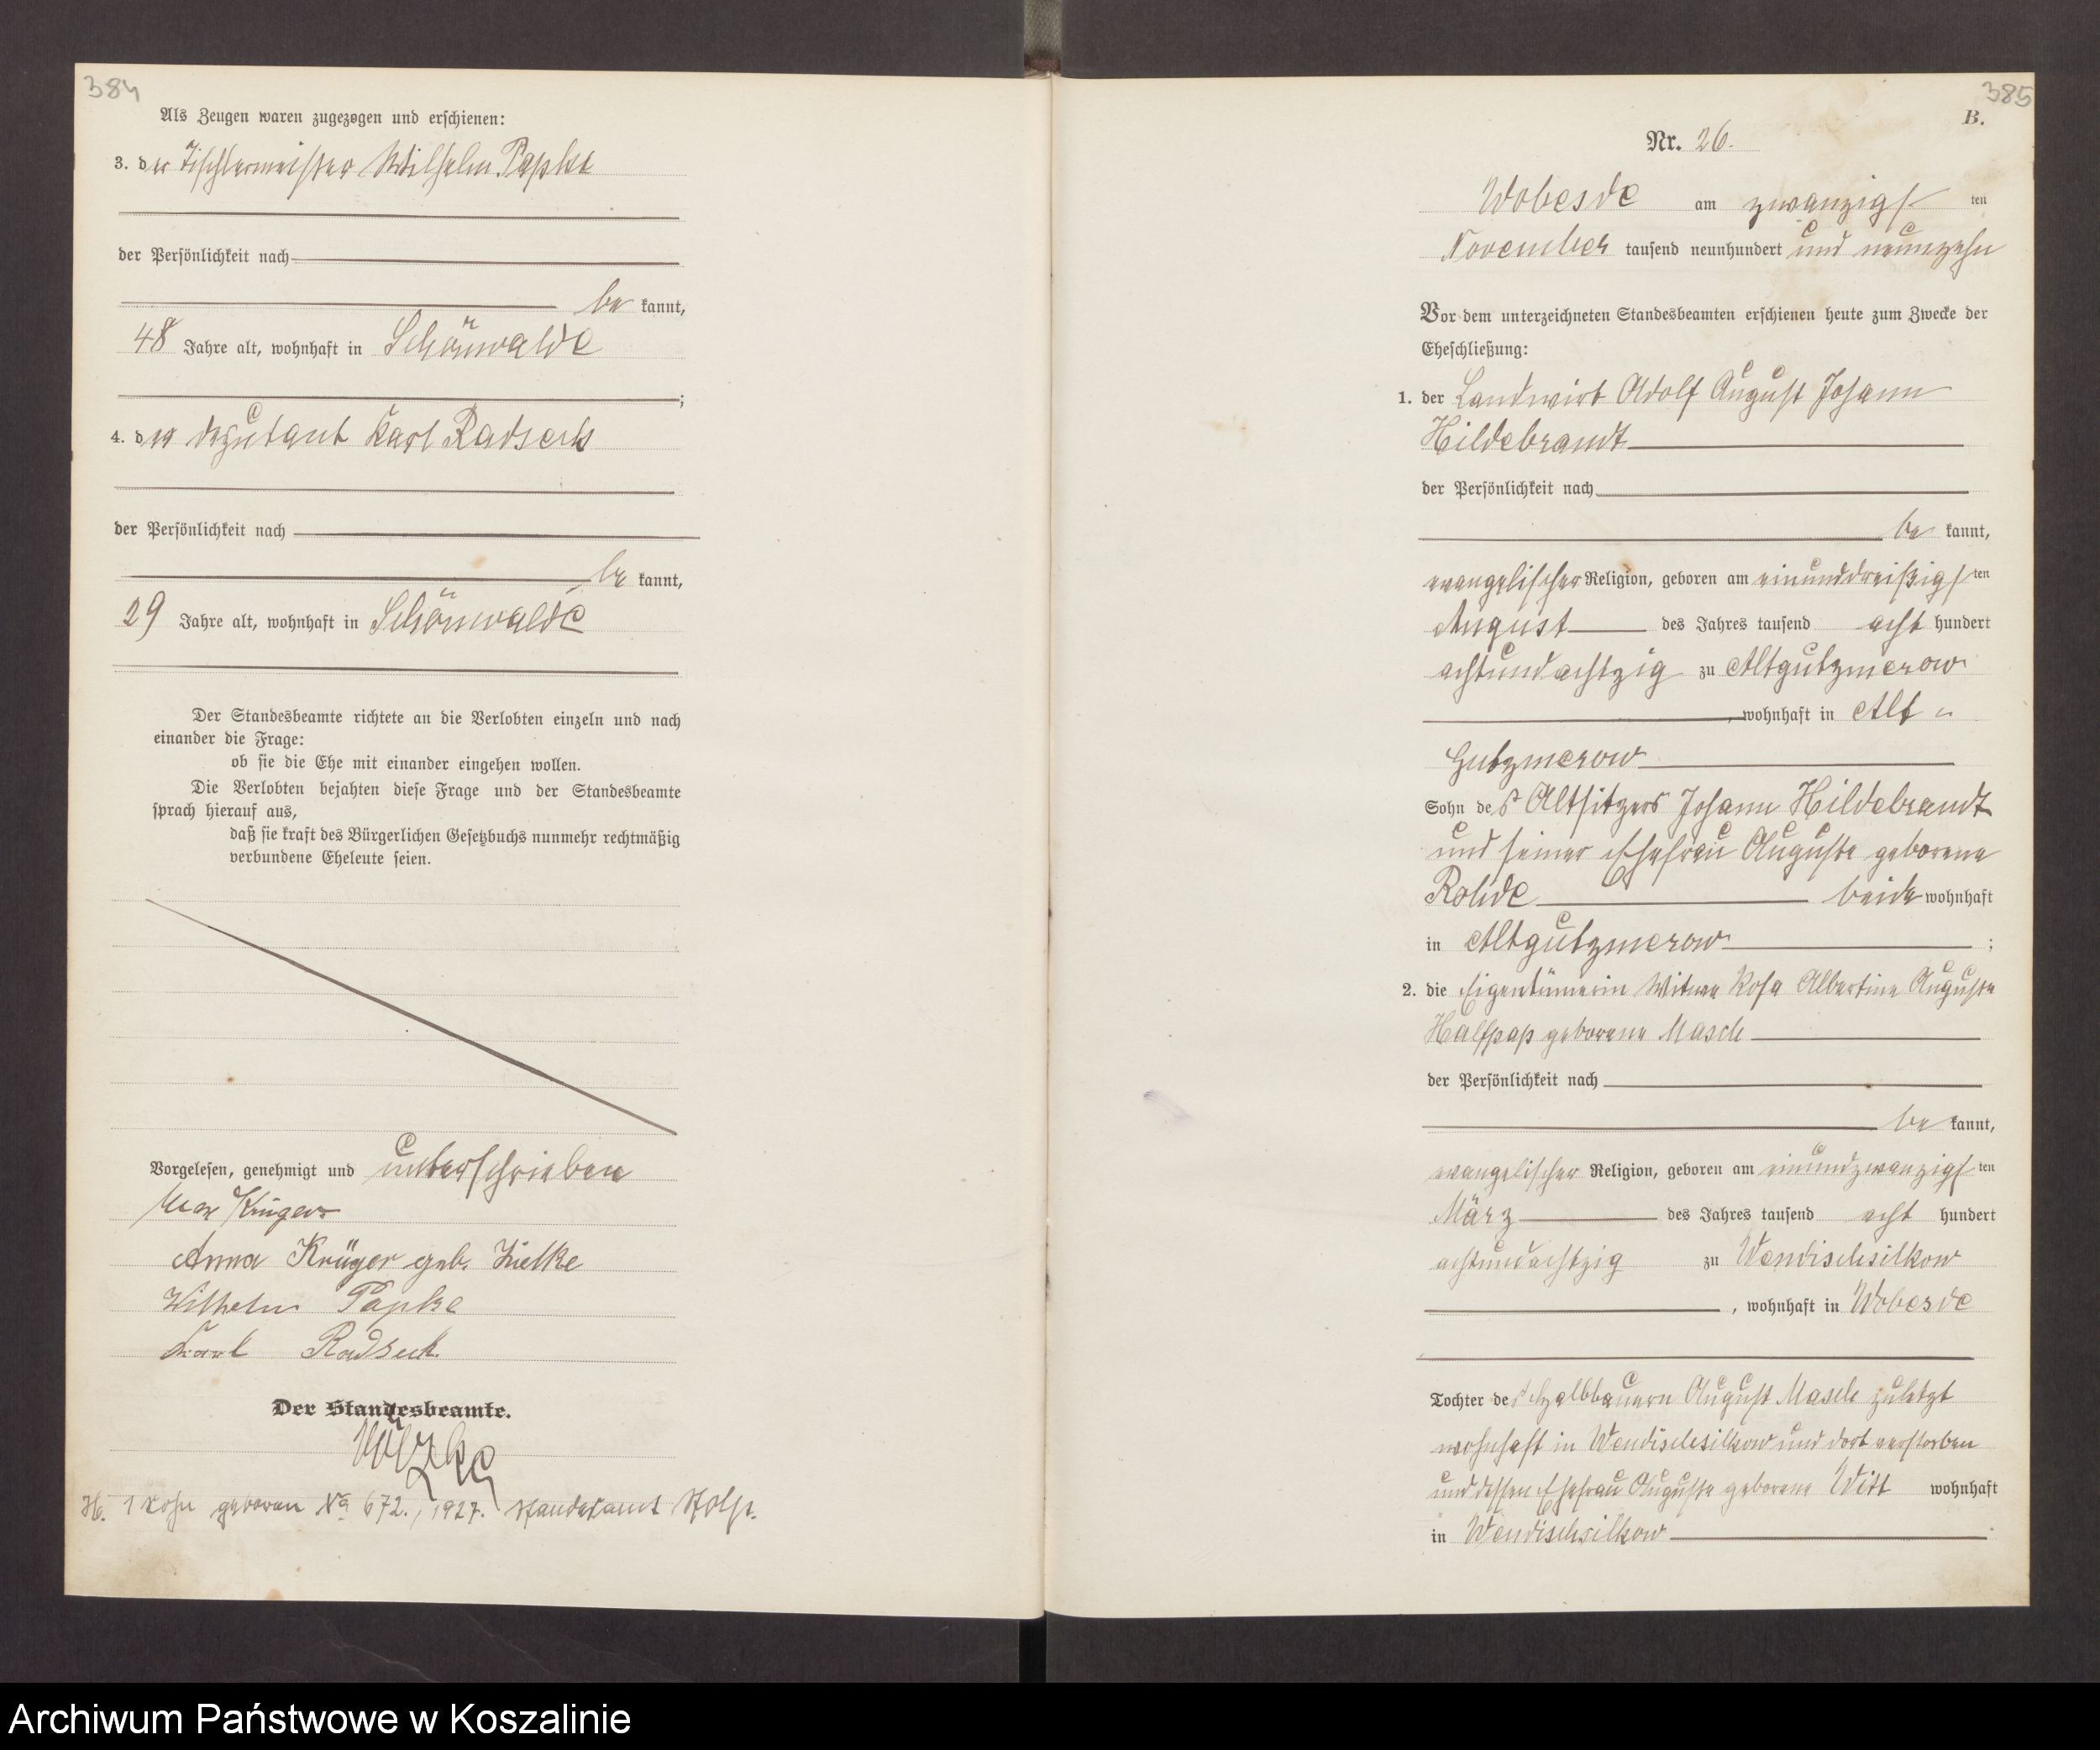 384
Als Zeugen waren zugezogen und erschienen:
3. der Tischlermeister Wilhelm Papke
der Persönlichkeit nach
be kannt,
48 Jahre alt, wohnhaft in Schönwalde
;
4. der Deputant Karl Radseck
der Persönlichkeit nach
be kannt,
29 Jahre alt, wohnhaft in Schönwalde
Der Standesbeamte richtete an die Verlobten einzeln und nach
einander die Frage:
ob sie die Ehe mit einander eingehen wollen.
Die Verlobten bejahten diese Frage und der Standesbeamte
sprach hierauf aus,
daß sie kraft des Bürgerlichen Gesetzbuchs nunmehr rechtmäßig
verbundene Eheleute seien.
Vorgelesen, genehmigt und unterschrieben
Max Krüger
Anna Krüger geb. Zielke
Wilhelm Papke
Karl Radseck.
Der Standesbeamte.
1 Sohn geboren No 672., 1927. Standesamt Stolp.
385
B.
Nr. 26.
Wobesde am zwanzigs ten
November tausend neunhundert und neunzehn
Vor dem unterzeichneten Standesbeamten erschienen heute zum Zwecke der
Eheschließung:
1. der Landwirt Adolf August Johann
Hildebrandt
der Persönlichkeit nach
be kannt,
evangelischer Religion, geboren am einunddreißigs ten
August des Jahres tausend acht hundert
achtundachtzig zu Altgutzmerow
, wohnhaft in Alt-
Gutzmerow
Sohn des Altsitzers Johann Hildebrandt
und seiner Ehefrau Auguste geborene
Rohde beide wohnhaft
in Altgutzmerow ;
2. die Eigentümerin Witwe Rosa Albertine Auguste
Halfpap geborene Masch
der Persönlichkeit nach
be kannt,
evangelischer Religion, geboren am einundzwanzigs ten
März des Jahres tausend acht hundert
achtundachtzig zu Wendischsilkow
, wohnhaft in Wobesde
Tochter des Halbbauern August Masch zuletzt
wohnhaft in Wendischsilkow und dort verstorben
und dessen Ehefrau Auguste geborene Witt wohnhaft
in Wendischsilkow .
Archiwum Państwowe w Koszalinie